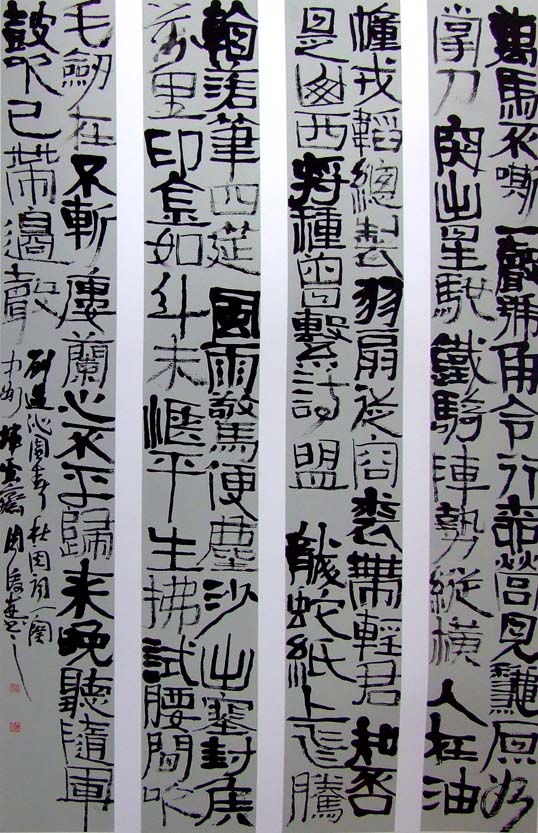 萬馬不嘶一聲號角令行營見龝原如
掌刀突出星馳鐵騎陣勢縱橫人在油
幢戎韜總製羽扇從容裘帶輕君知否
是西將種曾繫詩盟龍蛇紙上飛騰
落筆四筵風雨驚便塵沙出塞封侯
萬里印金如斗未愜平生拂試腰間吹
毛劍在不斬樓蘭心不平歸来晚聽隨軍
鼓吹已帶邊聲
劉過沁園春秋詞一闋